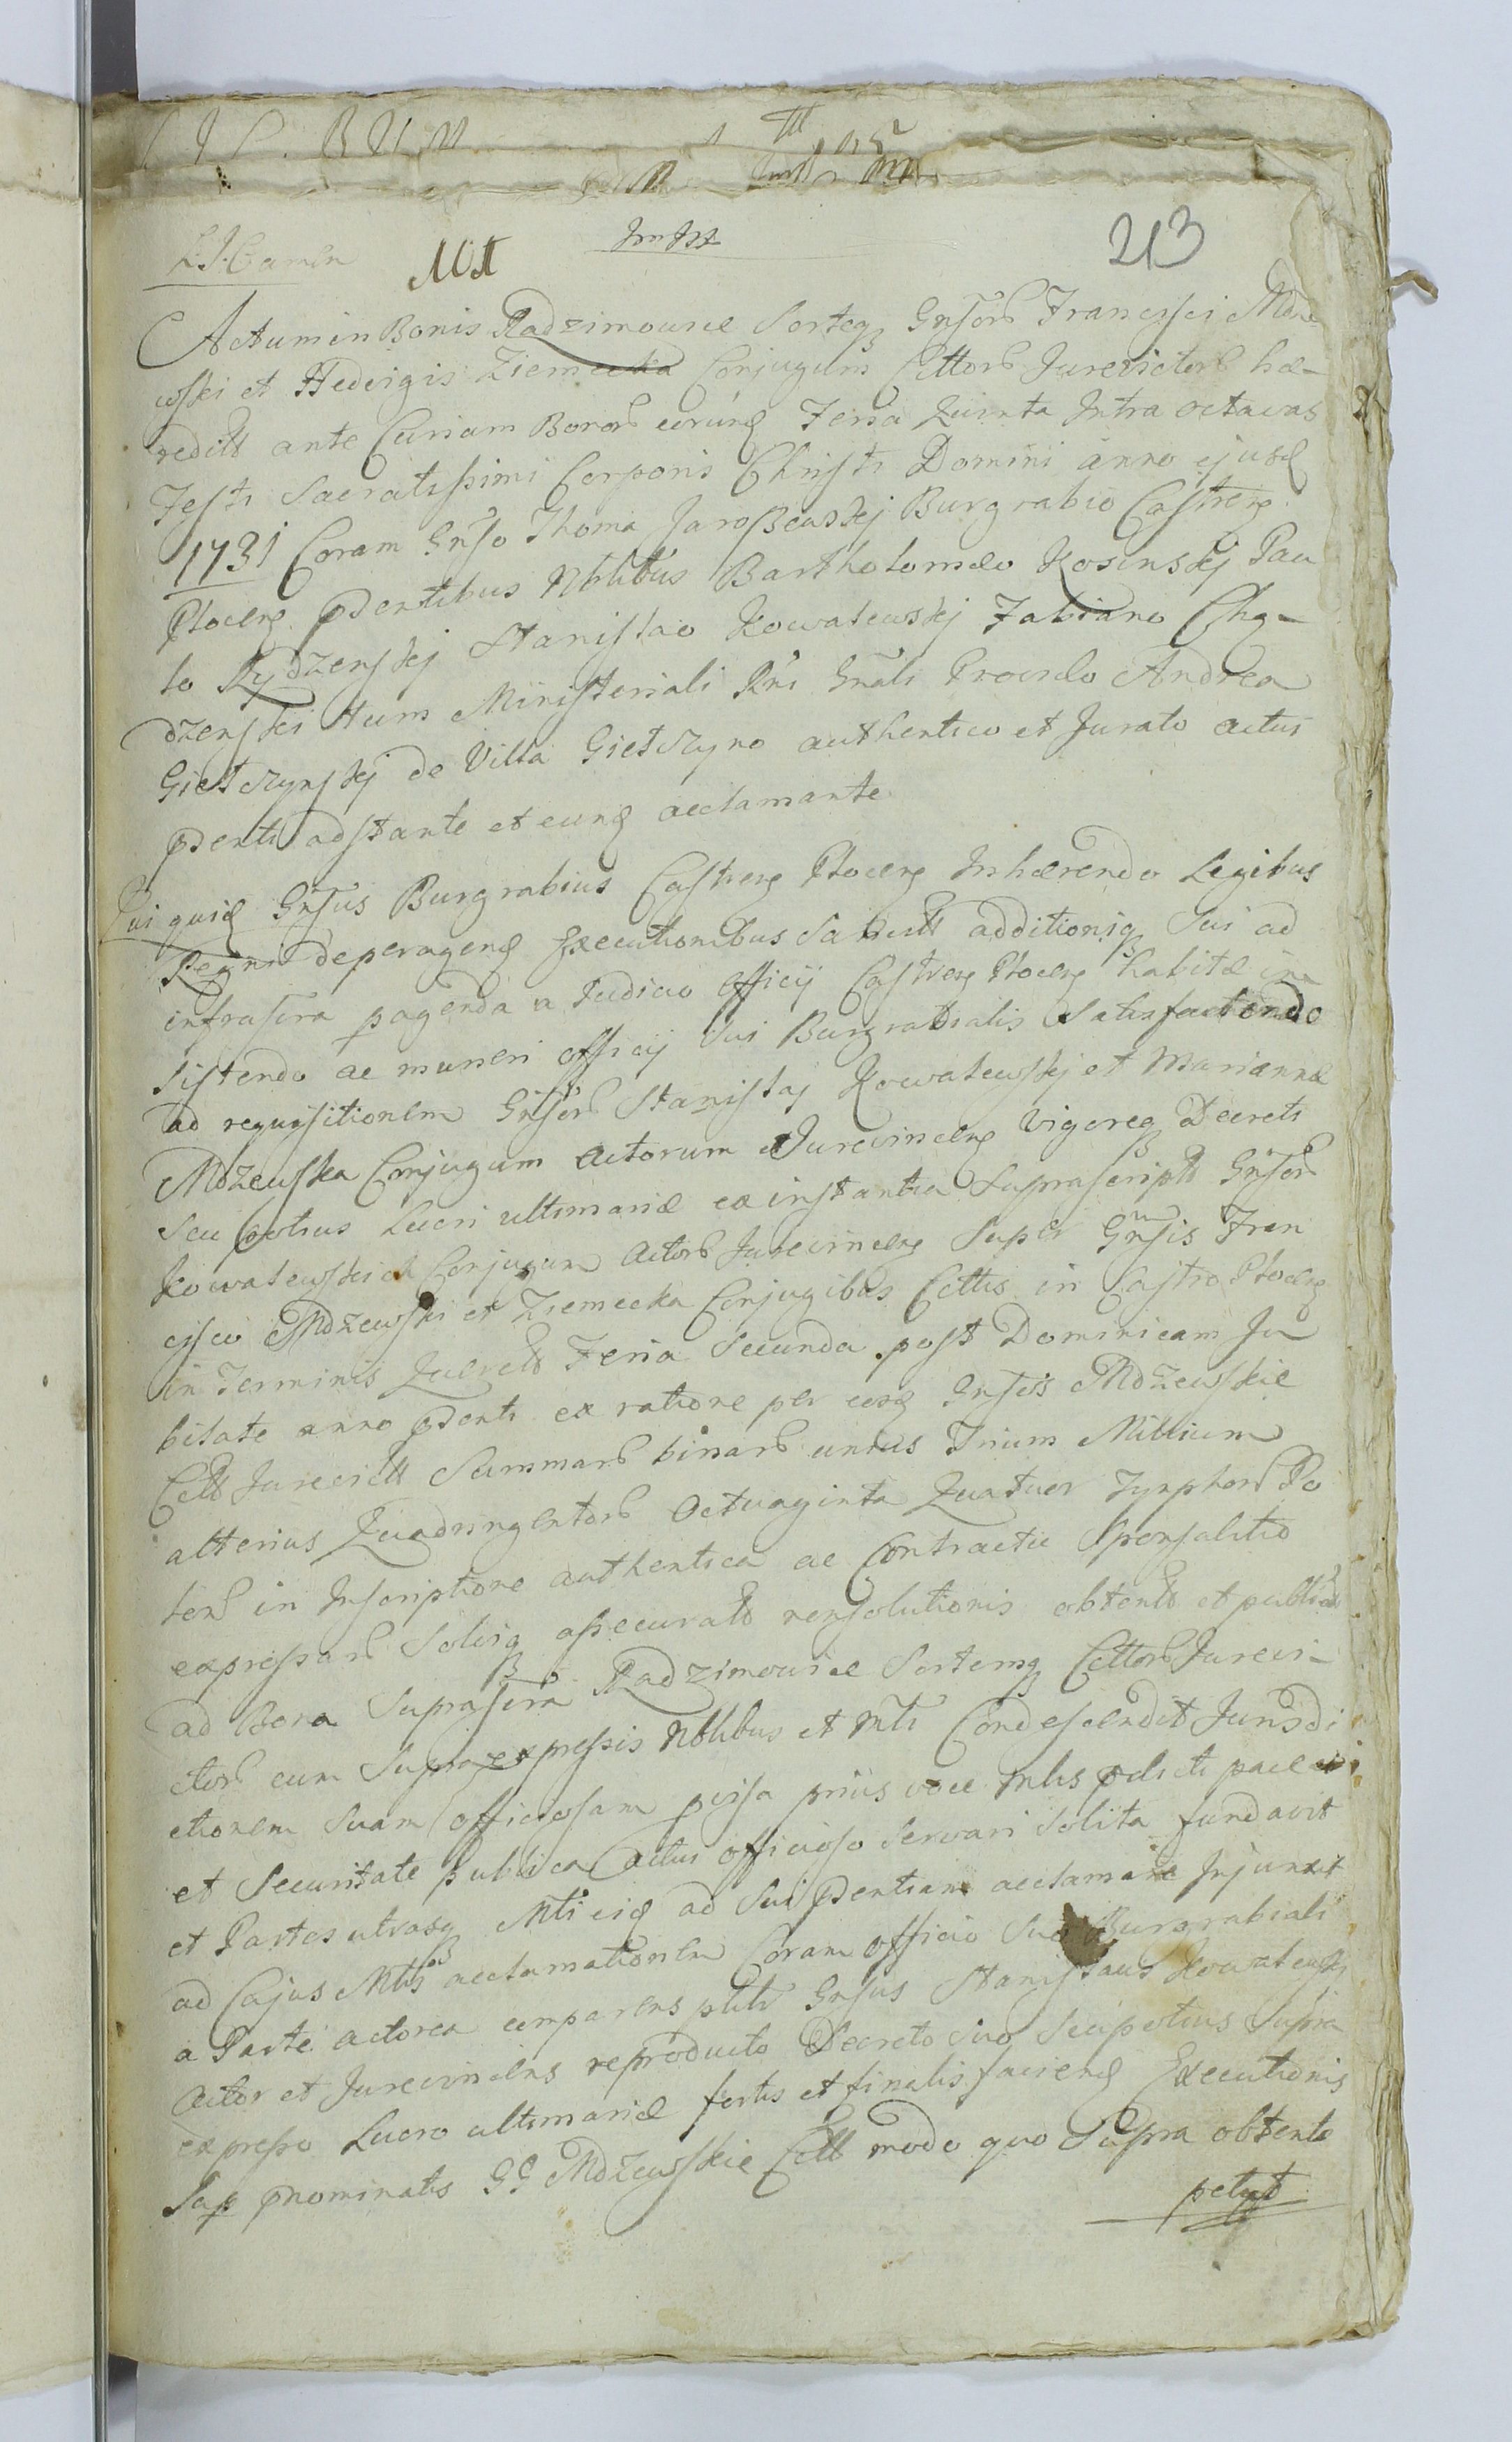 213
Actum in Bonis Radzimowice Sorteq Gnsorb Francisci Mdze
wski et Hedvigis Ziemecka Conjugum Cittorb Jurevictorb hæ-
redits ante Curiam Bonorb eorund Feria Quinta Intra octavas
Festi Sacratissimi Corporis Christi Domini anno ejusd
1731 Coram Gnso Thoma Jaroszewskj Burgrabio Castren
Plocen pdentibus Nblibus Bartholomæo Kosinskj Pau
lo Rydzenskj Stanislao Kowalewskj Fabiano Chą-
dzenski tum Ministeriali Rni Gnali Provido Andrea
Gietczynskj de Villa Gietczyno authentico et Jurato actui
pdenti adstante et eund acclamante
Qui quid Gnsus Burgrabius Castren Plocen Inhærendo Legibus
Regni de peragend Executionibus Sancits additioniq Sui ad
infrascra pagenda a Judicio Officij Castren Plocen habitæ in
sistendo ac muneri officij sui Burgrabialis Satisfaciendo
ad requisitionem Gnsorb Stanislaj Kowalewskj et Mariannæ
Mdzewska Conjugum Actorum et Jurevincen vigoreq Decreti
Seu potius Lucri ultimariæ ex instantia Suprascripts Gnsorb
Kowalewskich Conjugum Actorb Jurevincen Super Gnsis Fran
cisco Mdzewski et Ziemecka Conjugibus Cittis in Castro Plocen
in Terminis Querels Feria Secunda post Dominicam Ju
bilate anno pdenti ex ratione per eosd Gnsos Mdzewskie
Citts Jurevicts Summarb binarb unius Trium Millium
alterius Quadringentorb Octuaginta Quatuor Tynphorb Po
lonb in Inscriptione authentica ac Contractu Sponsalitio
expressarb Solviq assecurats nensolutionis obtents et publicats
ad Bona Suprascra Radzimowice Sortemq Cittorb Jurevi-
ctorb cum Supraexpressis Nblibus et Mli Condescendit Jurisdi
ctionem Suam Officiosam pvisa prius voce Mlis pdicti pace
et Securitate publica Actui officioso Servari Solita fundavit
et Partes utrasq Mli eid ad Sui pdentiam acclamare Injunxit
ad Cujus Mlis acclamationem Coram officio Suo Burgrabiali
a Parte actorea comparens pltr Gnsus Stanislaus Kowalewski
Actor et Jurevincens reproducto Decreto Suo Seu potius Supra
expresso Lucro ultimariæ fortis et finalis faciend Executionis
Sup pnominatis GG Mdzewskie Citts modo quo Supra obtento
petyt